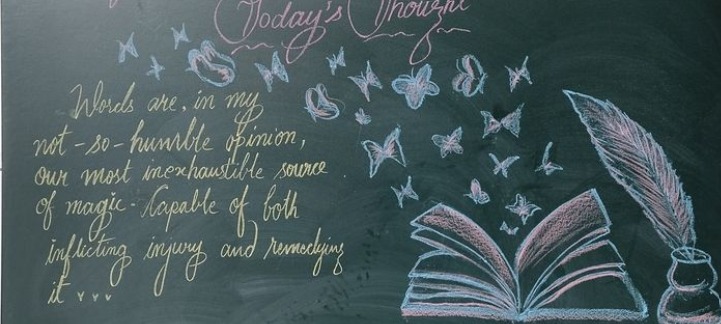 Today's Thought
Words are, in my
not-so-humble opinion,
our most inexhaustible source
of magic. Capable of both
inflicting injury and remedying
it...